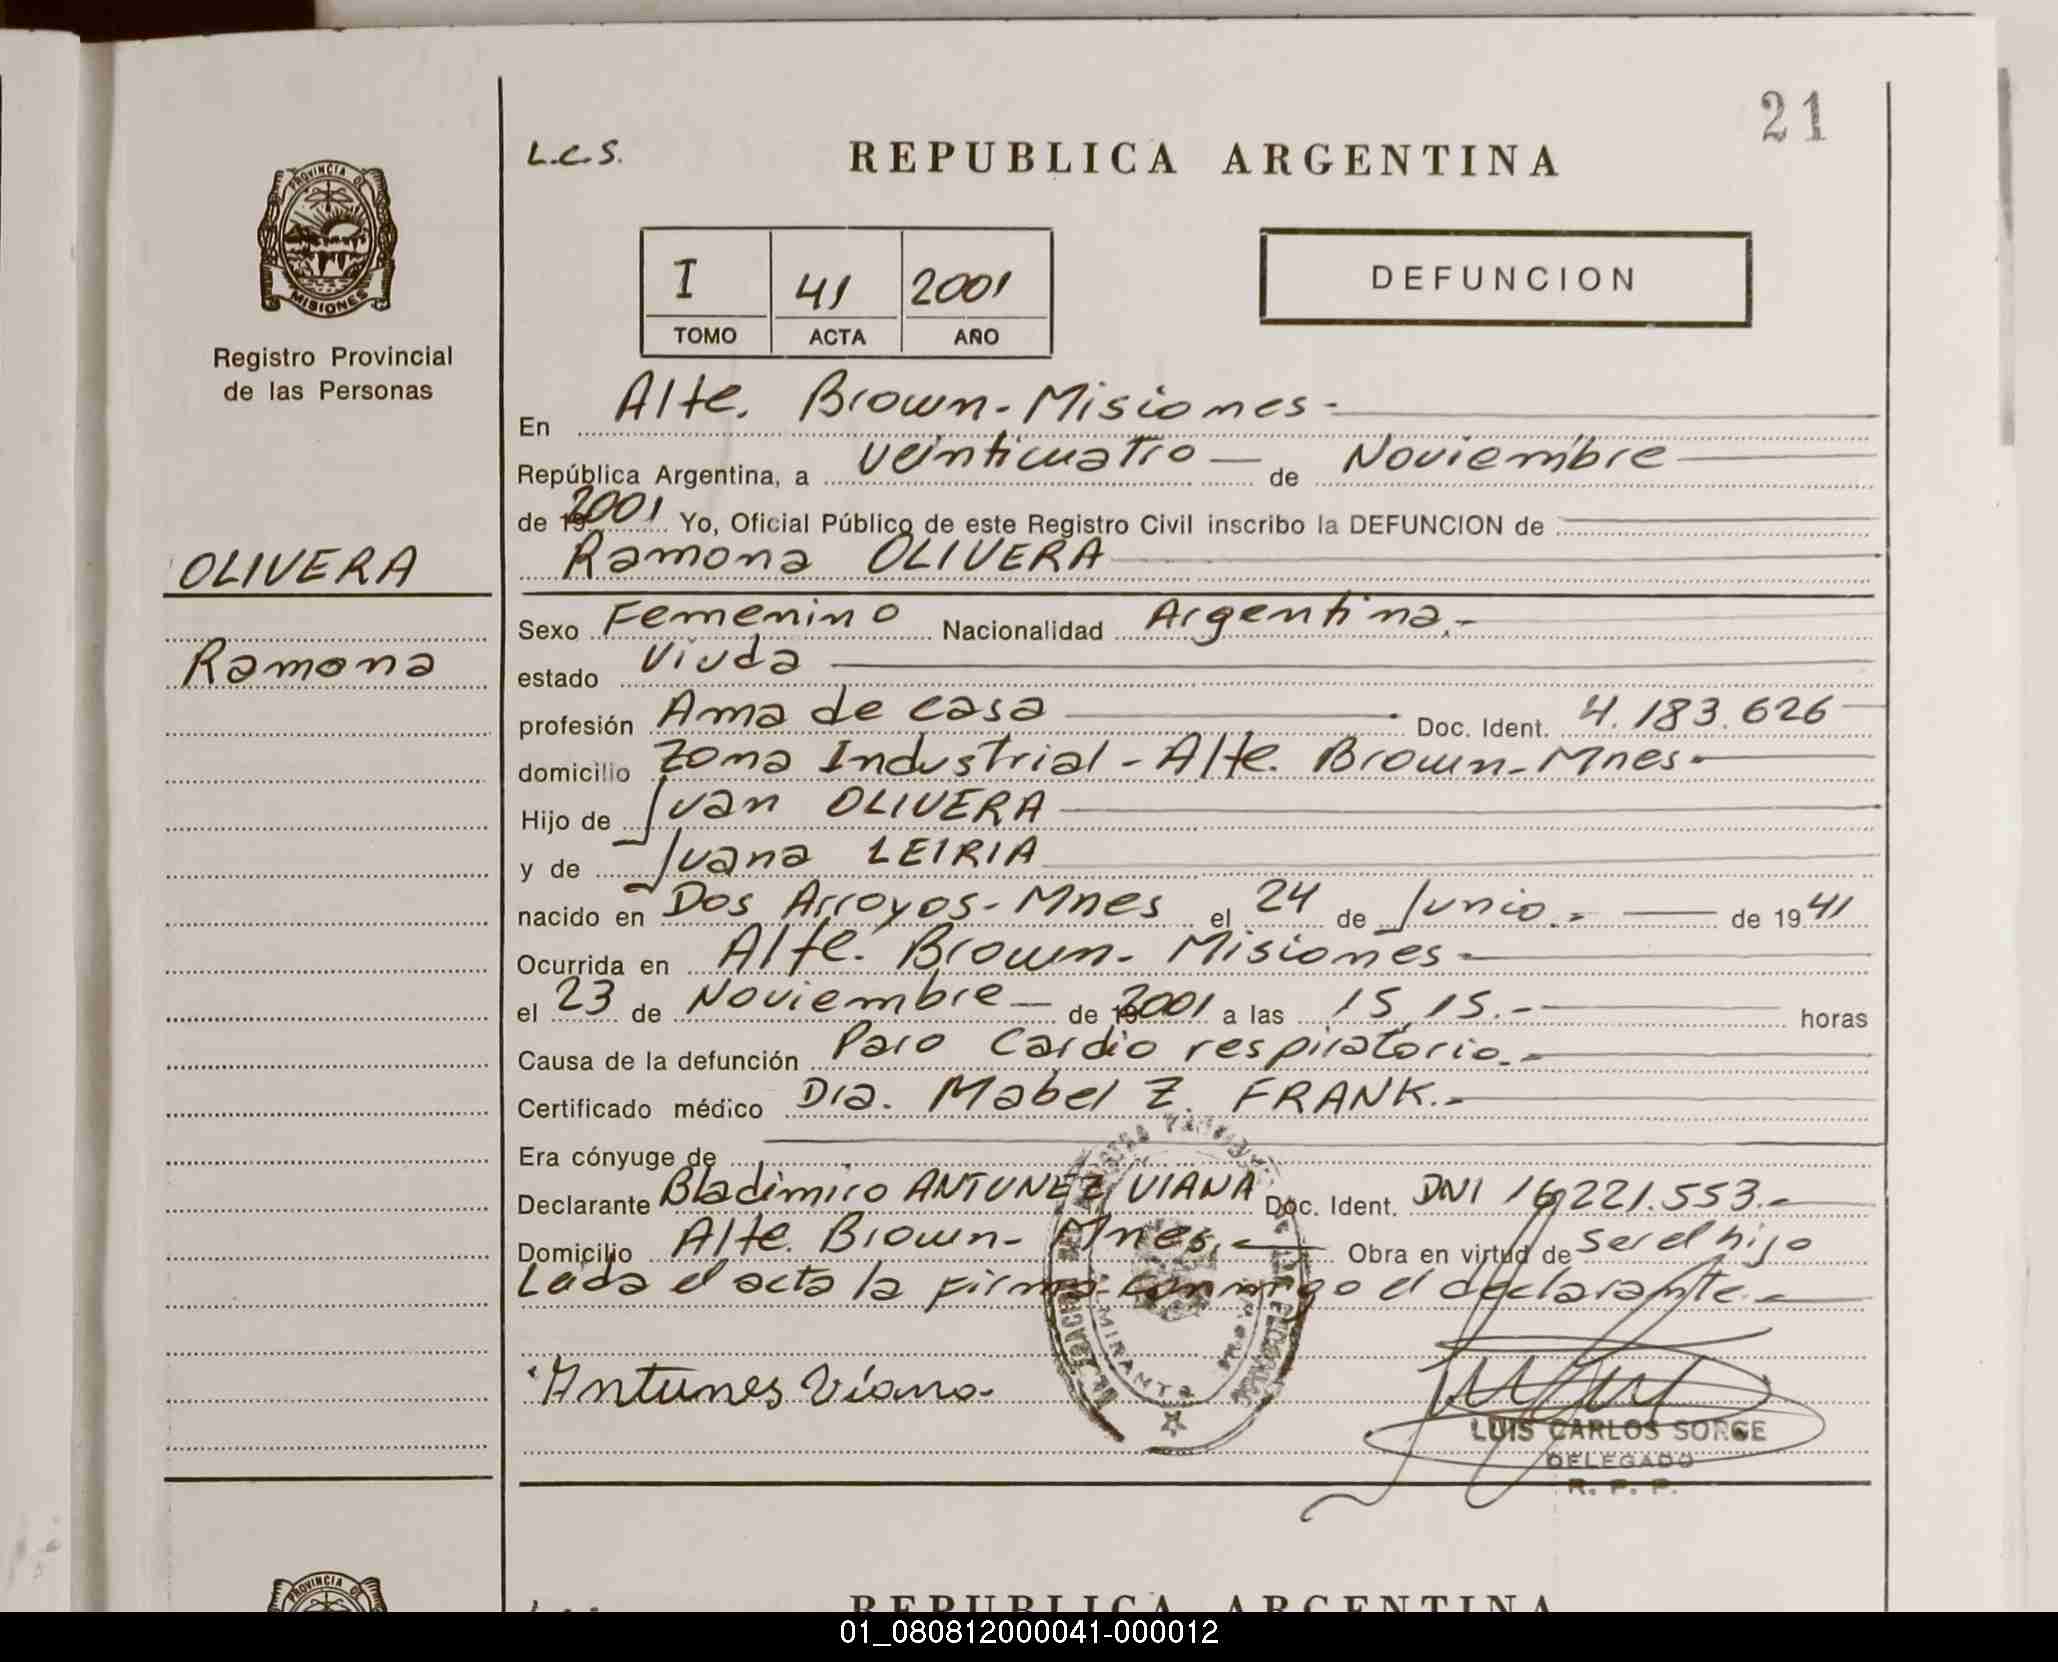 21
L.C.S.
REPUBLICA ARGENTINA
PROVINCIA DE
MISIONES
Registro Provincial
de las Personas
I 41 2001
TOMO ACTA AÑO
DEFUNCION
En Alte. Brown - Misiones -
República Argentina, a veinticuatro de Noviembre
de 2001 Yo, Oficial Público de este Registro Civil inscribo la DEFUNCION de
OLIVERA
Ramona OLIVERA
Sexo Femenino Nacionalidad Argentina.-
Ramona
estado Viuda
profesión Ama de casa Doc. Ident. 4.183.626
domicilio Zona Industrial - Alte. Brown - Mnes.
Hijo de Juan OLIVERA
y de Juana LEIRIA
nacido en Dos Arroyos - Mnes el 24 de Junio.- de 1941
Ocurrida en Alte. Brown - Misiones
el 23 de Noviembre de 2001 a las 15,15.- horas
Causa de la defunción Paro Cardio respiratorio.-
Certificado médico Dra. Mabel Z. FRANK.-
Era cónyuge de
Declarante Bladimiro ANTUNEZ VIANA Doc. Ident. DNI 16.221.553.-
Domicilio Alte. Brown - Mnes. Obra en virtud de ser el hijo
Leida el acta la firma conmigo el declarante.-
Antunes Viana.
LUIS CARLOS SORGE
DELEGADO
R. P. P.
PROVINCIA DE
REPUBLICA ARGENTINA
01_080812000041-000012